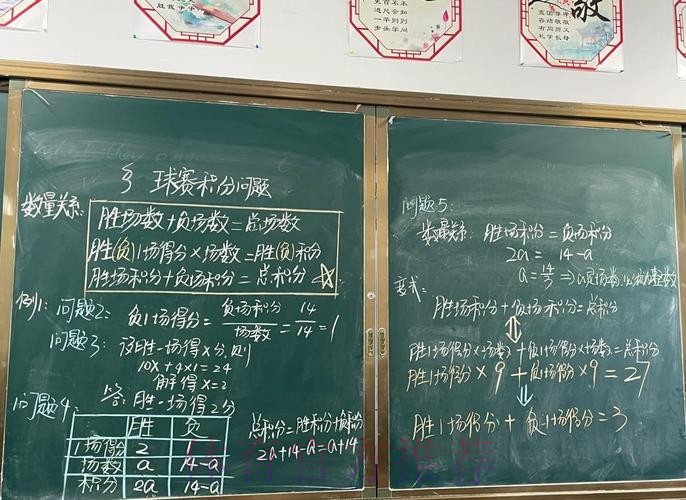 胜我于才
§ 球赛积分问题
数量关系:
胜场数+负场数=总场数
胜(负)1场得分×场数=胜(负)积分
胜场积分+负场积分=总积分 ☆
例1: 问题2: 负1场得分=负场积分/场数=14/14=1
问题3: 设胜一场得x分,则
10x+4×1=24
解得x=2
答:胜一场得2分
问题4:
胜 负
1场得分 2
场数 a 14-a
积分 2a 14-a
总积分=胜积分+负积分
2a+14-a=a+14
问题5:
数量关系: 胜场积分=负场积分
2a=14-a
a=14/3 ⇒a是场数,必须为整数
变式:
胜场积分+负场积分=总积分
⇕
胜1场得分×场数+负1场得分×场数=总积分
胜1场得分×9+负1场得分×9=27
⇓
胜1场得分+负1场得分=3